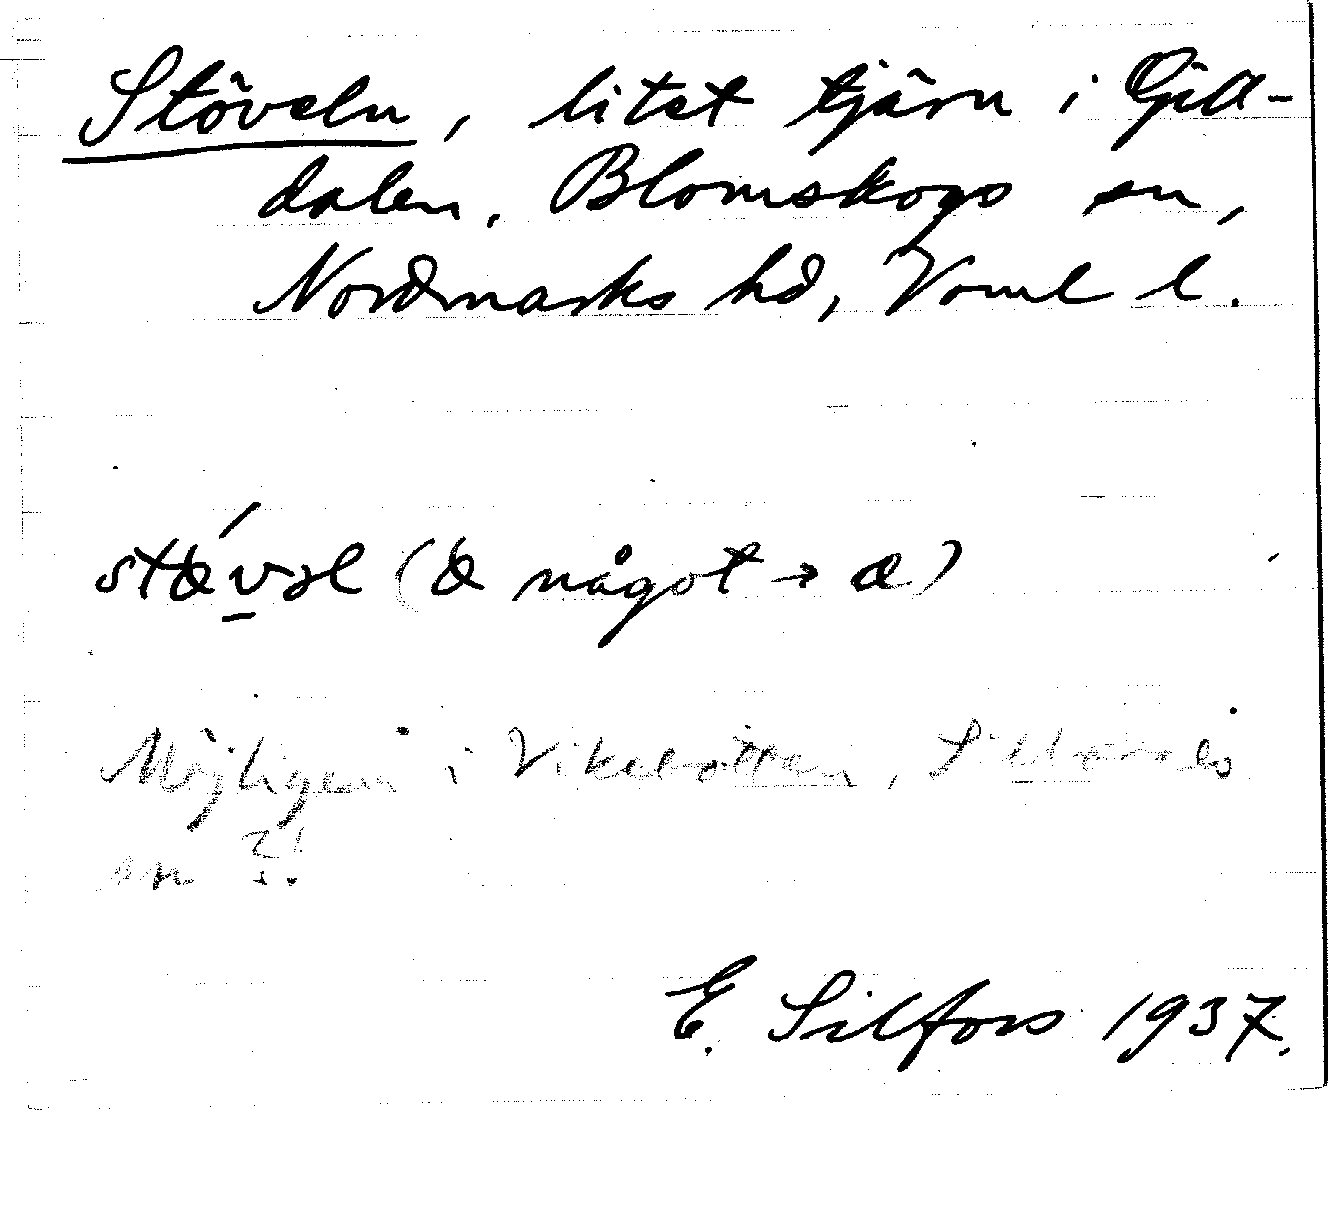 Stöveln, litet tjärn i Gill-
dalen, Blomskogs sn,
Nordmarks hd, Värml l.
något → œ)
Möjligen i , Sillbodals
sn ?!
E. Silfors 1937.